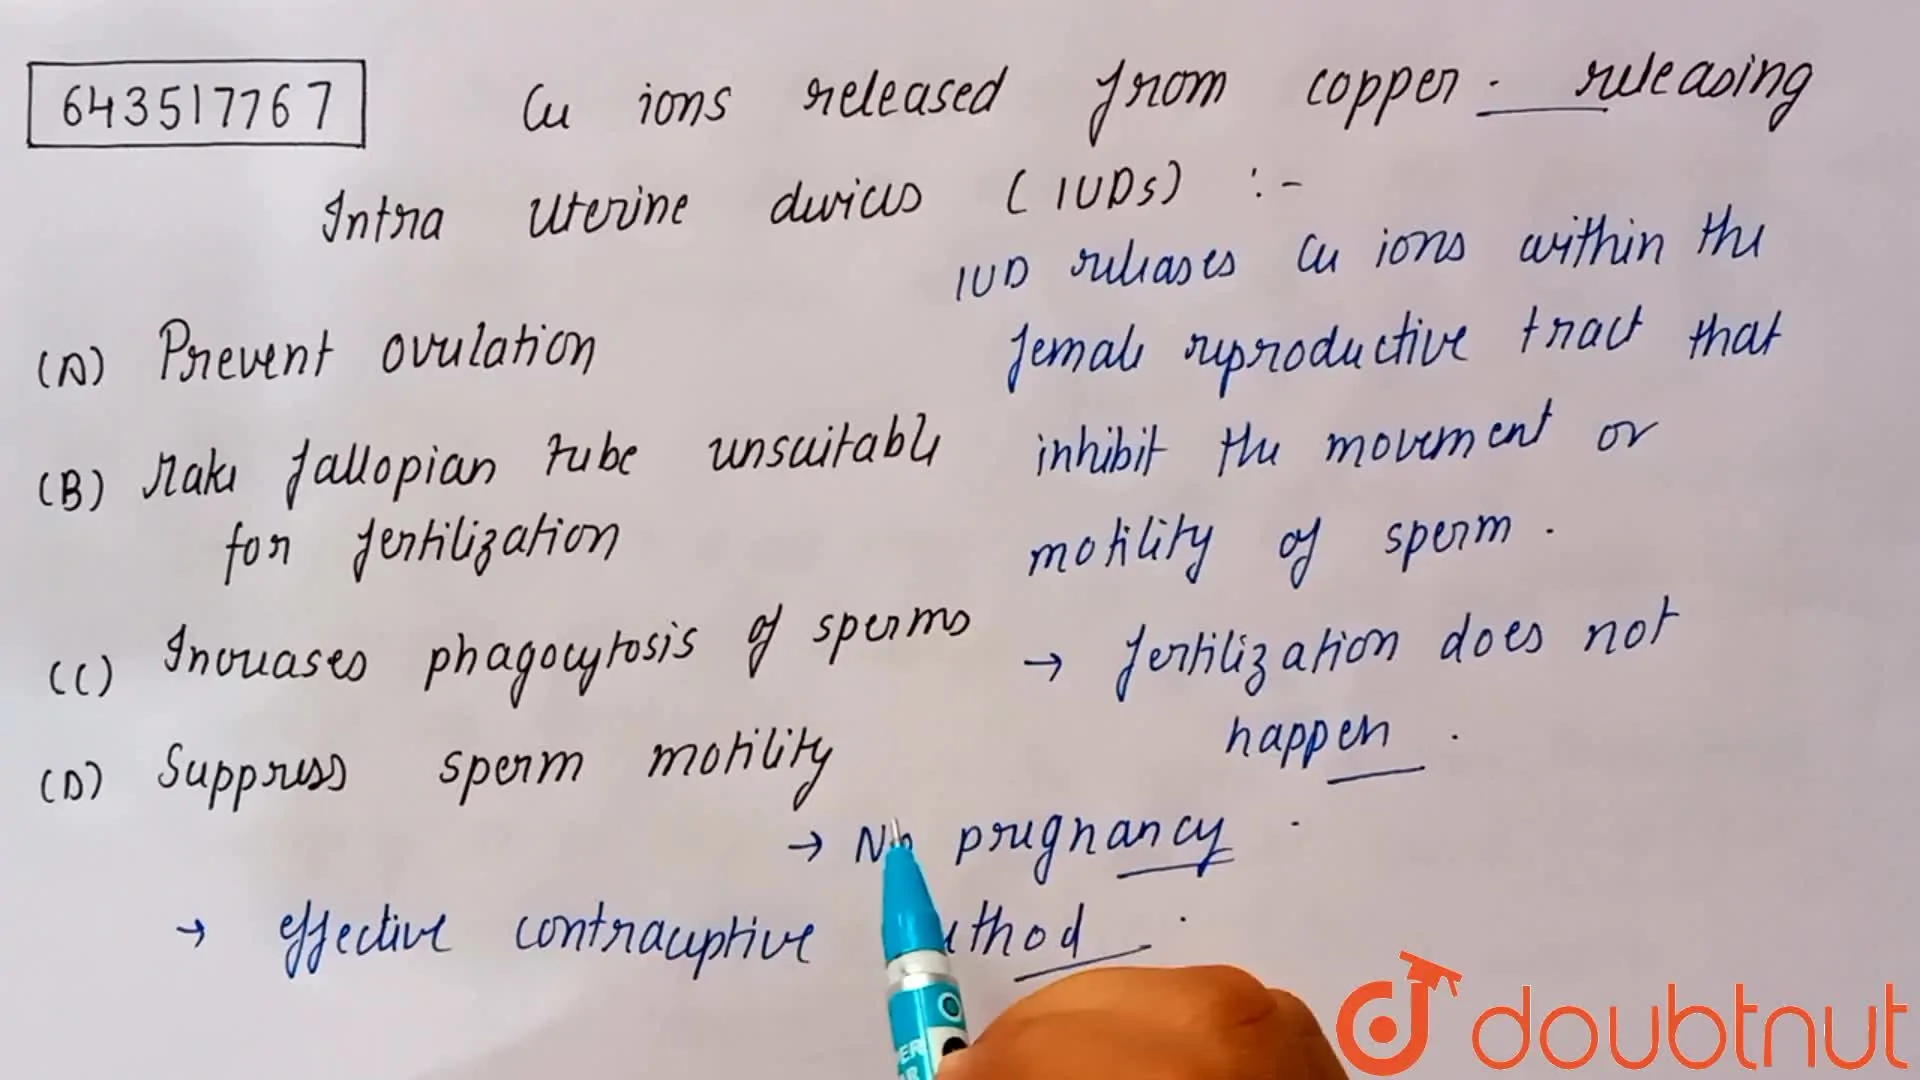 643517767
Cu ions released from copper - releasing
Intra Uterine devices (IUDs) :-
(A) Prevent ovulation
(B) Make fallopian tube unsuitable
for fertilization
(C) Increases phagocytosis of sperms
(D) Suppress sperm motility
IUD releases Cu ions within the
female reproductive tract that
inhibit the movement or
motility of sperm.
→ fertilization does not
happen.
→ No pregnancy.
→ effective contraceptive method.
doubtnut